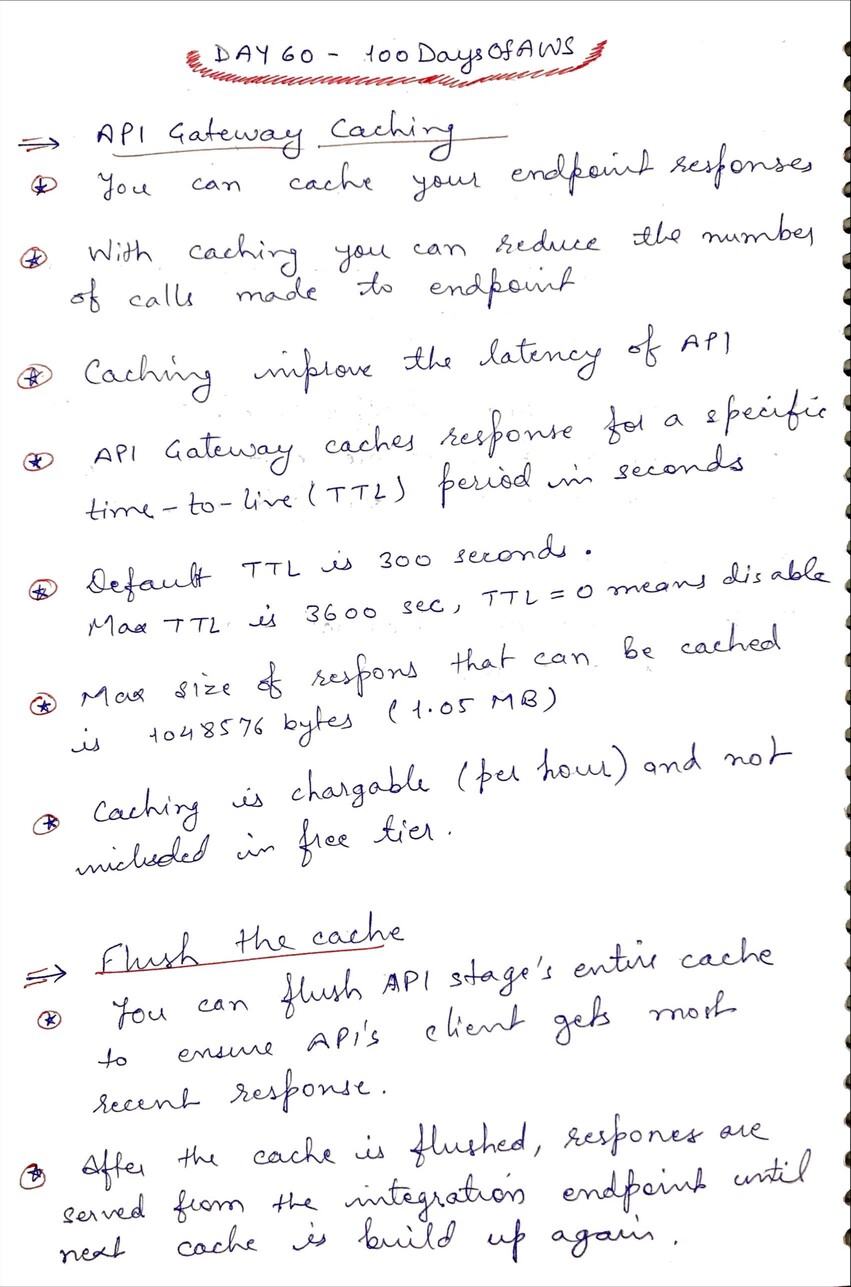 DAY 60 - 100DaysOfAWS
⇒ API Gateway Caching
★ You can cache your endpoint responses
★ With caching you can reduce the number
of calls made to endpoint
★ Caching improve the latency of API
★ API Gateway caches response for a specific
time-to-live (TTL) period in seconds
★ Default TTL is 300 seconds.
Max TTL is 3600 sec, TTL = 0 means disable
★ Max size of respons that can be cached
is 1048576 bytes (1.05 MB)
★ Caching is chargable (per hour) and not
included in free tier.
⇒ Flush the cache
★ You can flush API stage's entire cache
to ensure API's client gets most
recent response.
★ After the cache is flushed, respones are
served from the integration endpoint until
next cache is build up again.